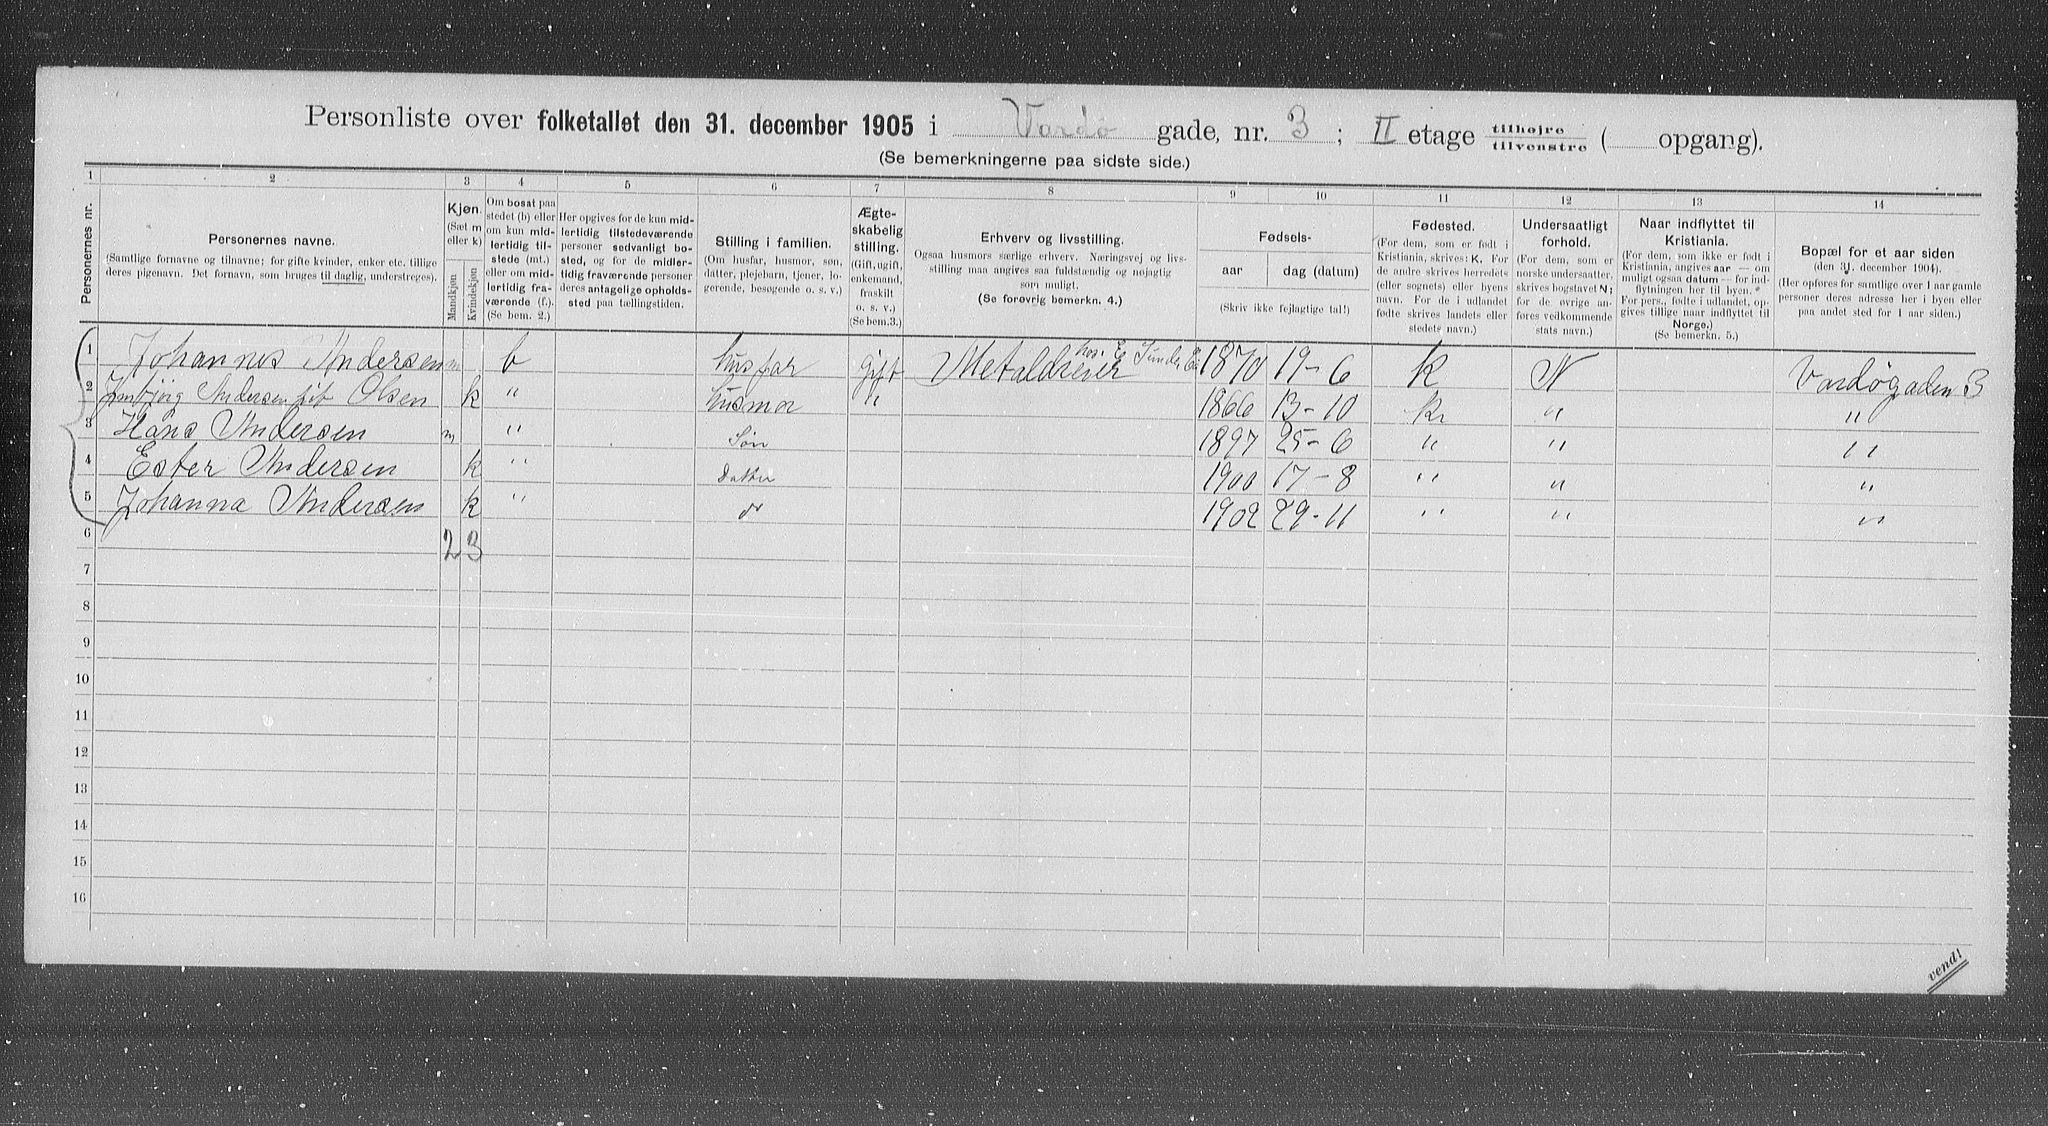 Personliste over folketallet den 31. december 1905 i Vardö gade, nr. 3; II etage tilhøjre tilvenstre ( opgang).
(Se bemerkningerne paa sidste side.)
1 2 3 4 5 6 7 8 9 10 11 12 13 14
Personernes nr.
Personernes navne.
(Samtlige fornavne og tilnavne; for gifte kvinder, enker etc. tillige
deres pigenavn. Det fornavn, som bruges til daglig, understreges).
Kjøn.
(Sæt m
eller k)
Mandkjøn
Kvindekjøn
Om bosat paa
stedet (b) eller
om kun mid-
lertidig til-
stede (mt.)
eller om mid-
lertidig fra-
værende (f.).
(Se bem. 2.)
Her opgives for de kun mid-
lertidig tilstedeværende
personer sedvanligt bo-
sted, og for de midler-
tidig fraværende personer
deres antagelige opholds-
sted paa tællingstiden.
Stilling i familien.
(Om husfar, husmor, søn,
datter, plejebarn, tjener, lo-
gerende, besøgende o. s. v.)
Ægte-
skabelig
stilling.
(Gift, ugift,
enkemand,
fraskilt
o. s. v.)
(Se bem.3.)
Erhverv og livsstilling.
Ogsaa husmors særlige erhverv. Næringsvej og livs-
stilling maa angives saa fuldstændig og nøjagtig
som muligt.
(Se forøvrig bemerkn. 4.)
Fødsels-
aar
dag (datum)
(Skriv ikke fejlagtige tal!)
Fødested.
(For dem, som er født i
Kristiania, skrives: K. For
de andre skrives herredets
(eller sognets) eller byens
navn. For de i udlandet
fødte skrives landets eller
stedets navn.)
Undersaatligt
forhold.
(For dem, som er
norske undersaatter,
skrives bogstavet N;
for de øvrige an-
føres vedkommende
stats navn.)
Naar indflyttet til
Kristiania.
(For dem, som ikke er født i
Kristiania, angives aar — om
muligt ogsaa datum — for ind-
flytningen her til byen.
For pers., fødte i udlandet, op-
gives tillige naar indflyttet til
Norge.)
(Se bemerkn. 5.)
Bopæl for et aar siden
(den 31. december 1904).
(Her opføres for samtlige over 1 aar gamle
personer deres adresse her i byen eller
paa andet sted for 1 aar siden.)
1 Johannes Andersen m b husfar Gift Metaldreier hos. E 1870 19-6 K N Vardøgaden 3
2 Andersen Olsen k " husmor " 1866 13-10 Kr " "
3 Hans Andersen m " Søn 1897 25-6 " " "
4 Ester Andersen k " datter 1900 17-8 " " "
5 Johanna Andersen k " 1902 29-11 " " "
6 2 3
7
8
9
10
11
12
13
14
15
16
vend!